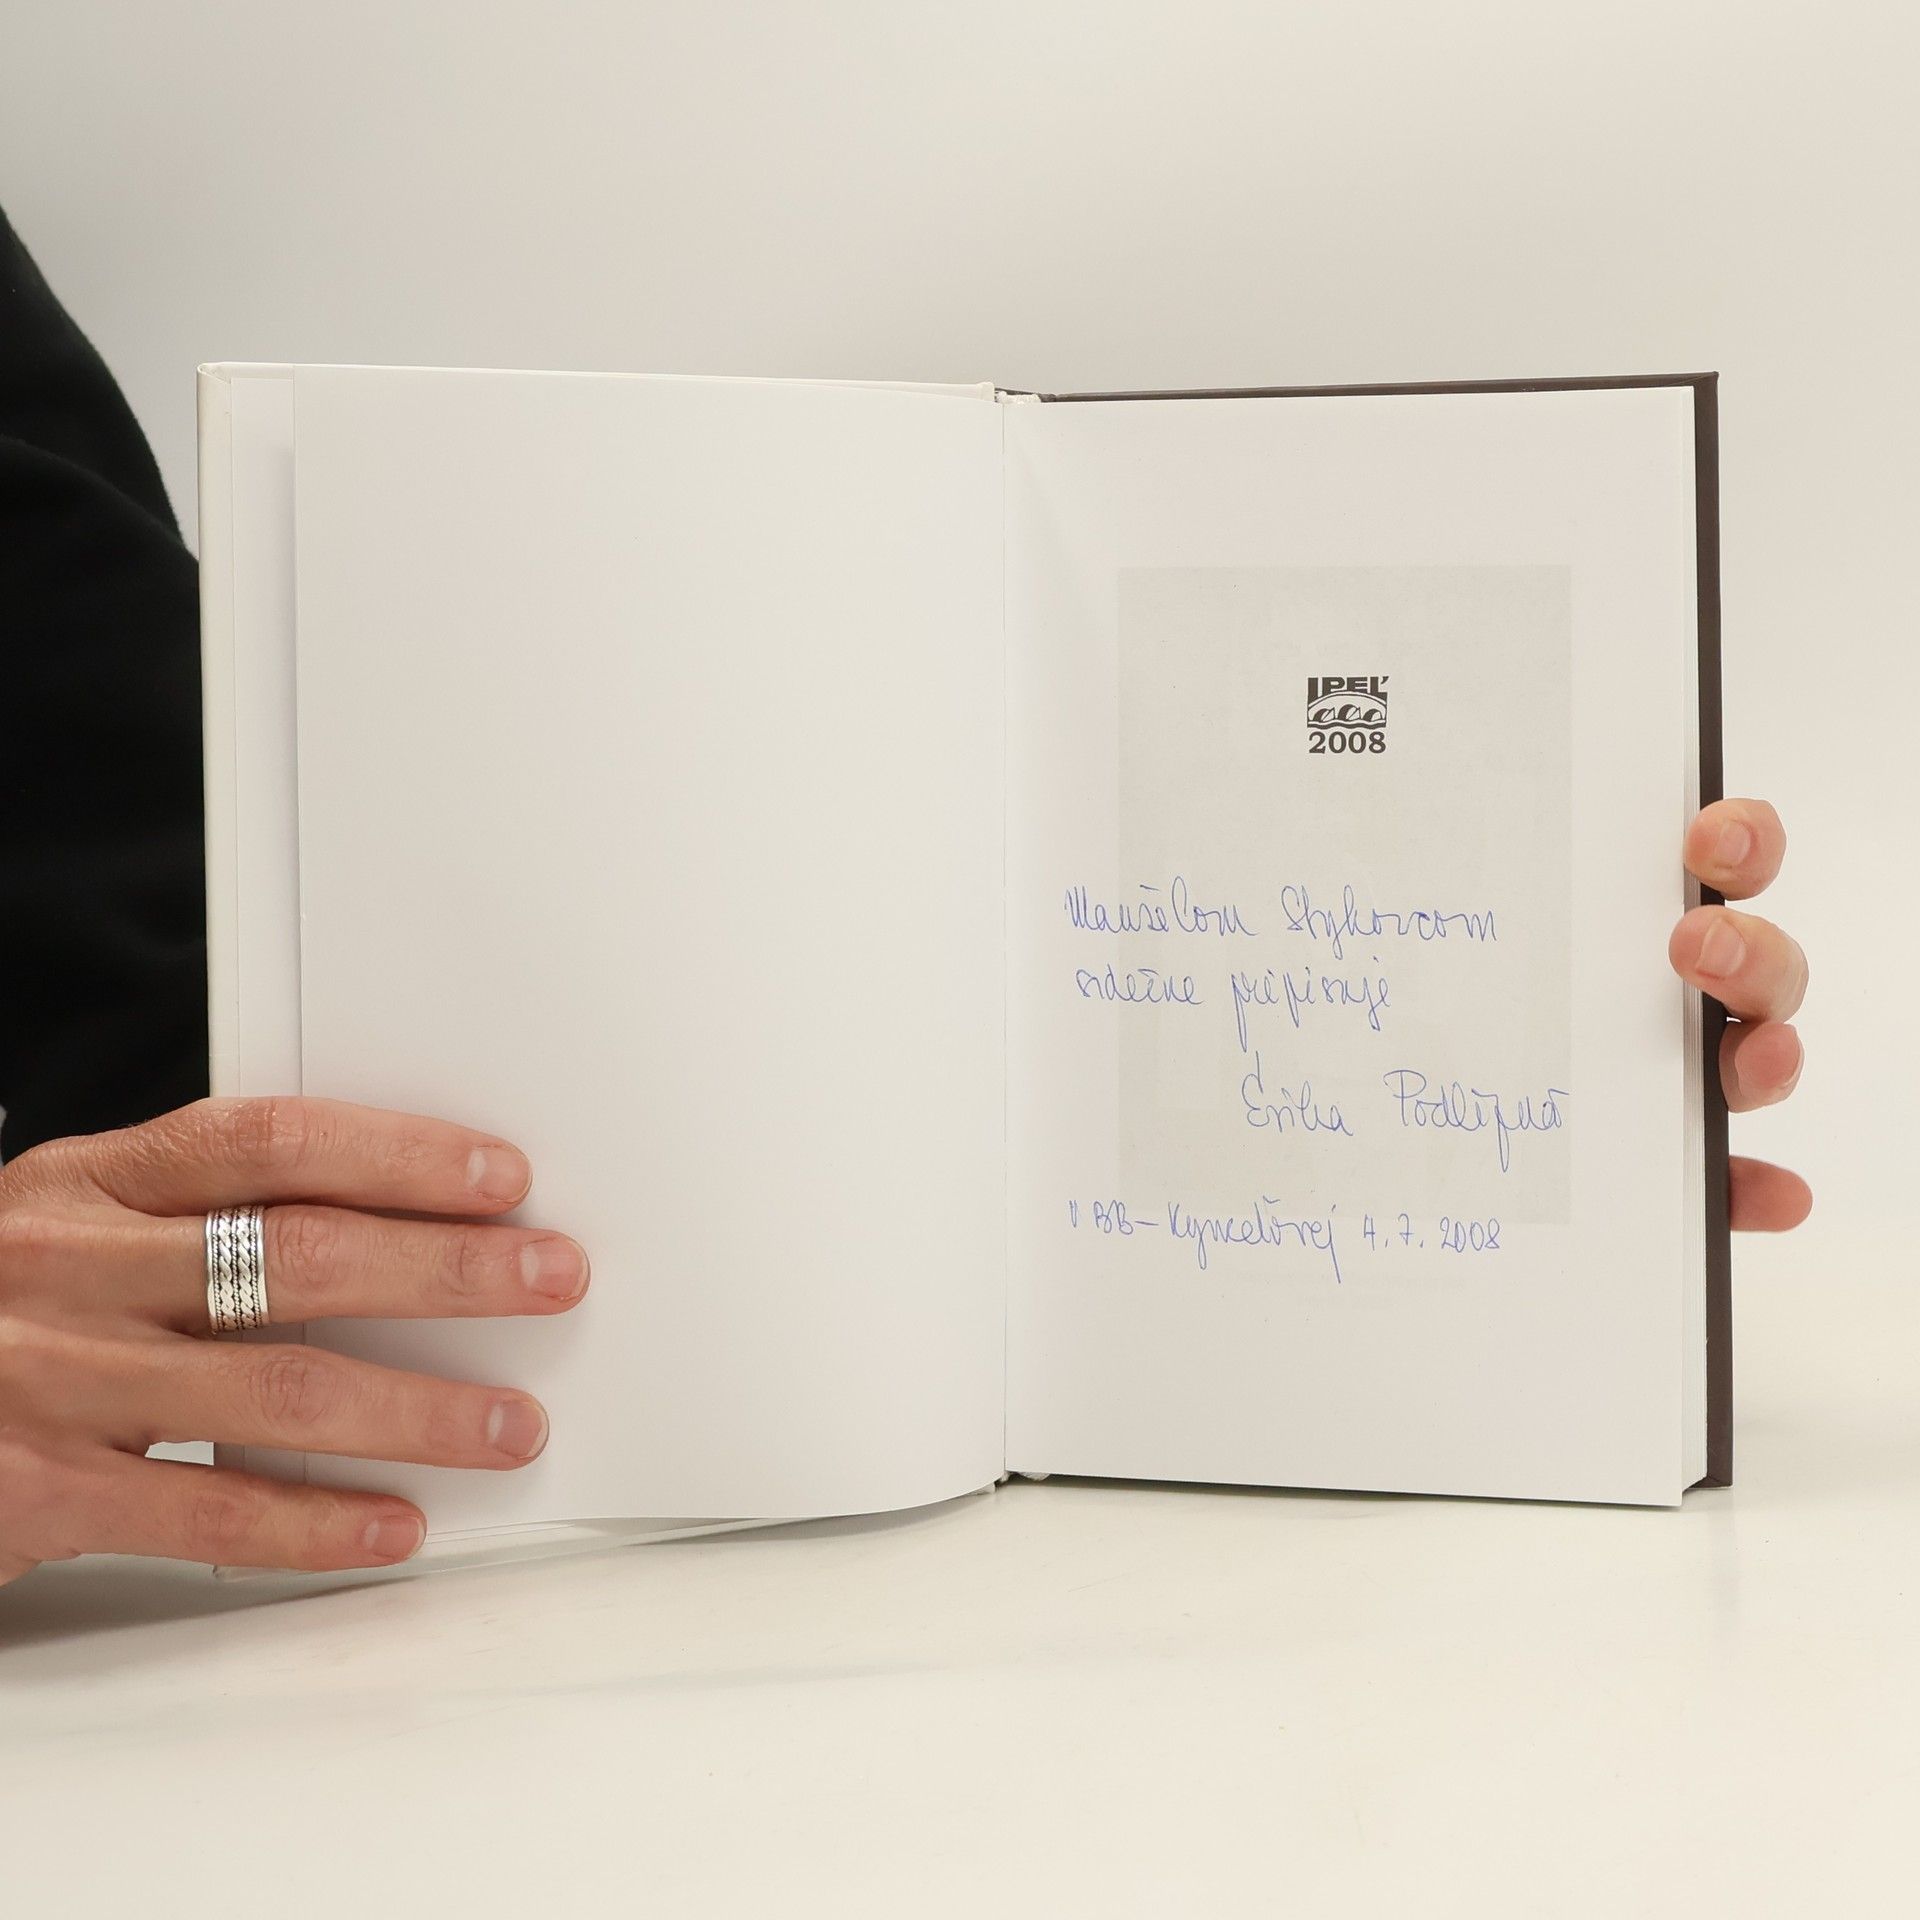 IPEĽ
2008
Manželom Stykovcom
srdečne pripisuje
Erika Podlipná
V BB-Kynceľovej 4.7.2008